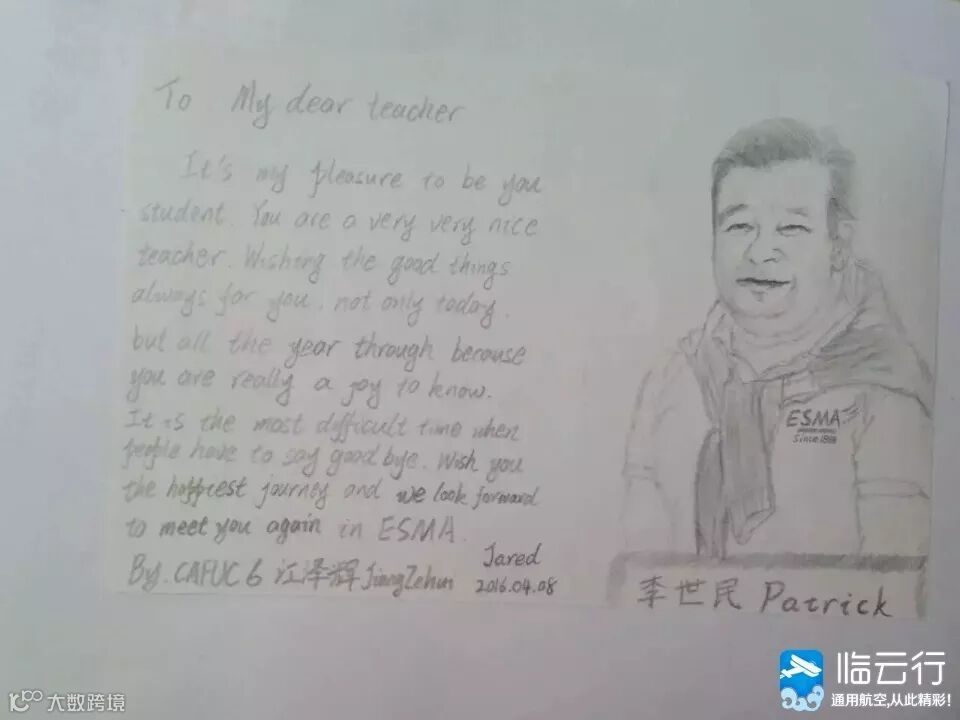 To My dear teacher
It's my pleasure to be you
student. You are a very very nice
teacher. Wishing the good things
always for you, not only today,
but all the year through because
you are really a joy to know.
It is the most difficult time when
people have to say good bye. Wish you
the happiest journey and we look forward
to meet you again in ESMA.
By. CAFUC 6 江泽辉 JiangZehui Jared
2016.04.08
ESMA
Since
李世民 Patrick
临云行
通用航空,从此精彩!
大数跨境